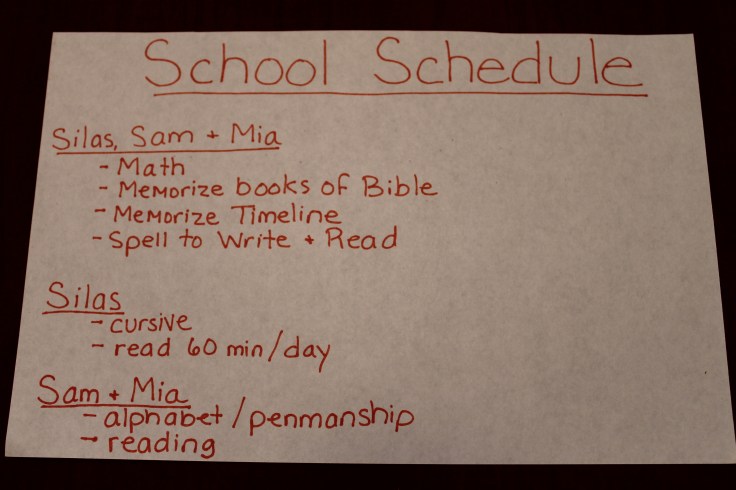 School Schedule
Silas, Sam + Mia
- Math
- Memorize books of Bible
- Memorize Timeline
- Spell to Write + Read
Silas
- cursive
- read 60 min/day
Sam + Mia
- alphabet / penmanship
- reading